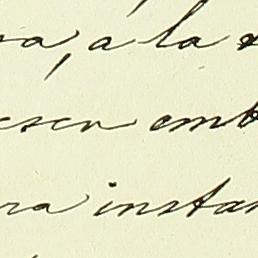 ra, a la
esen emb
ra instan